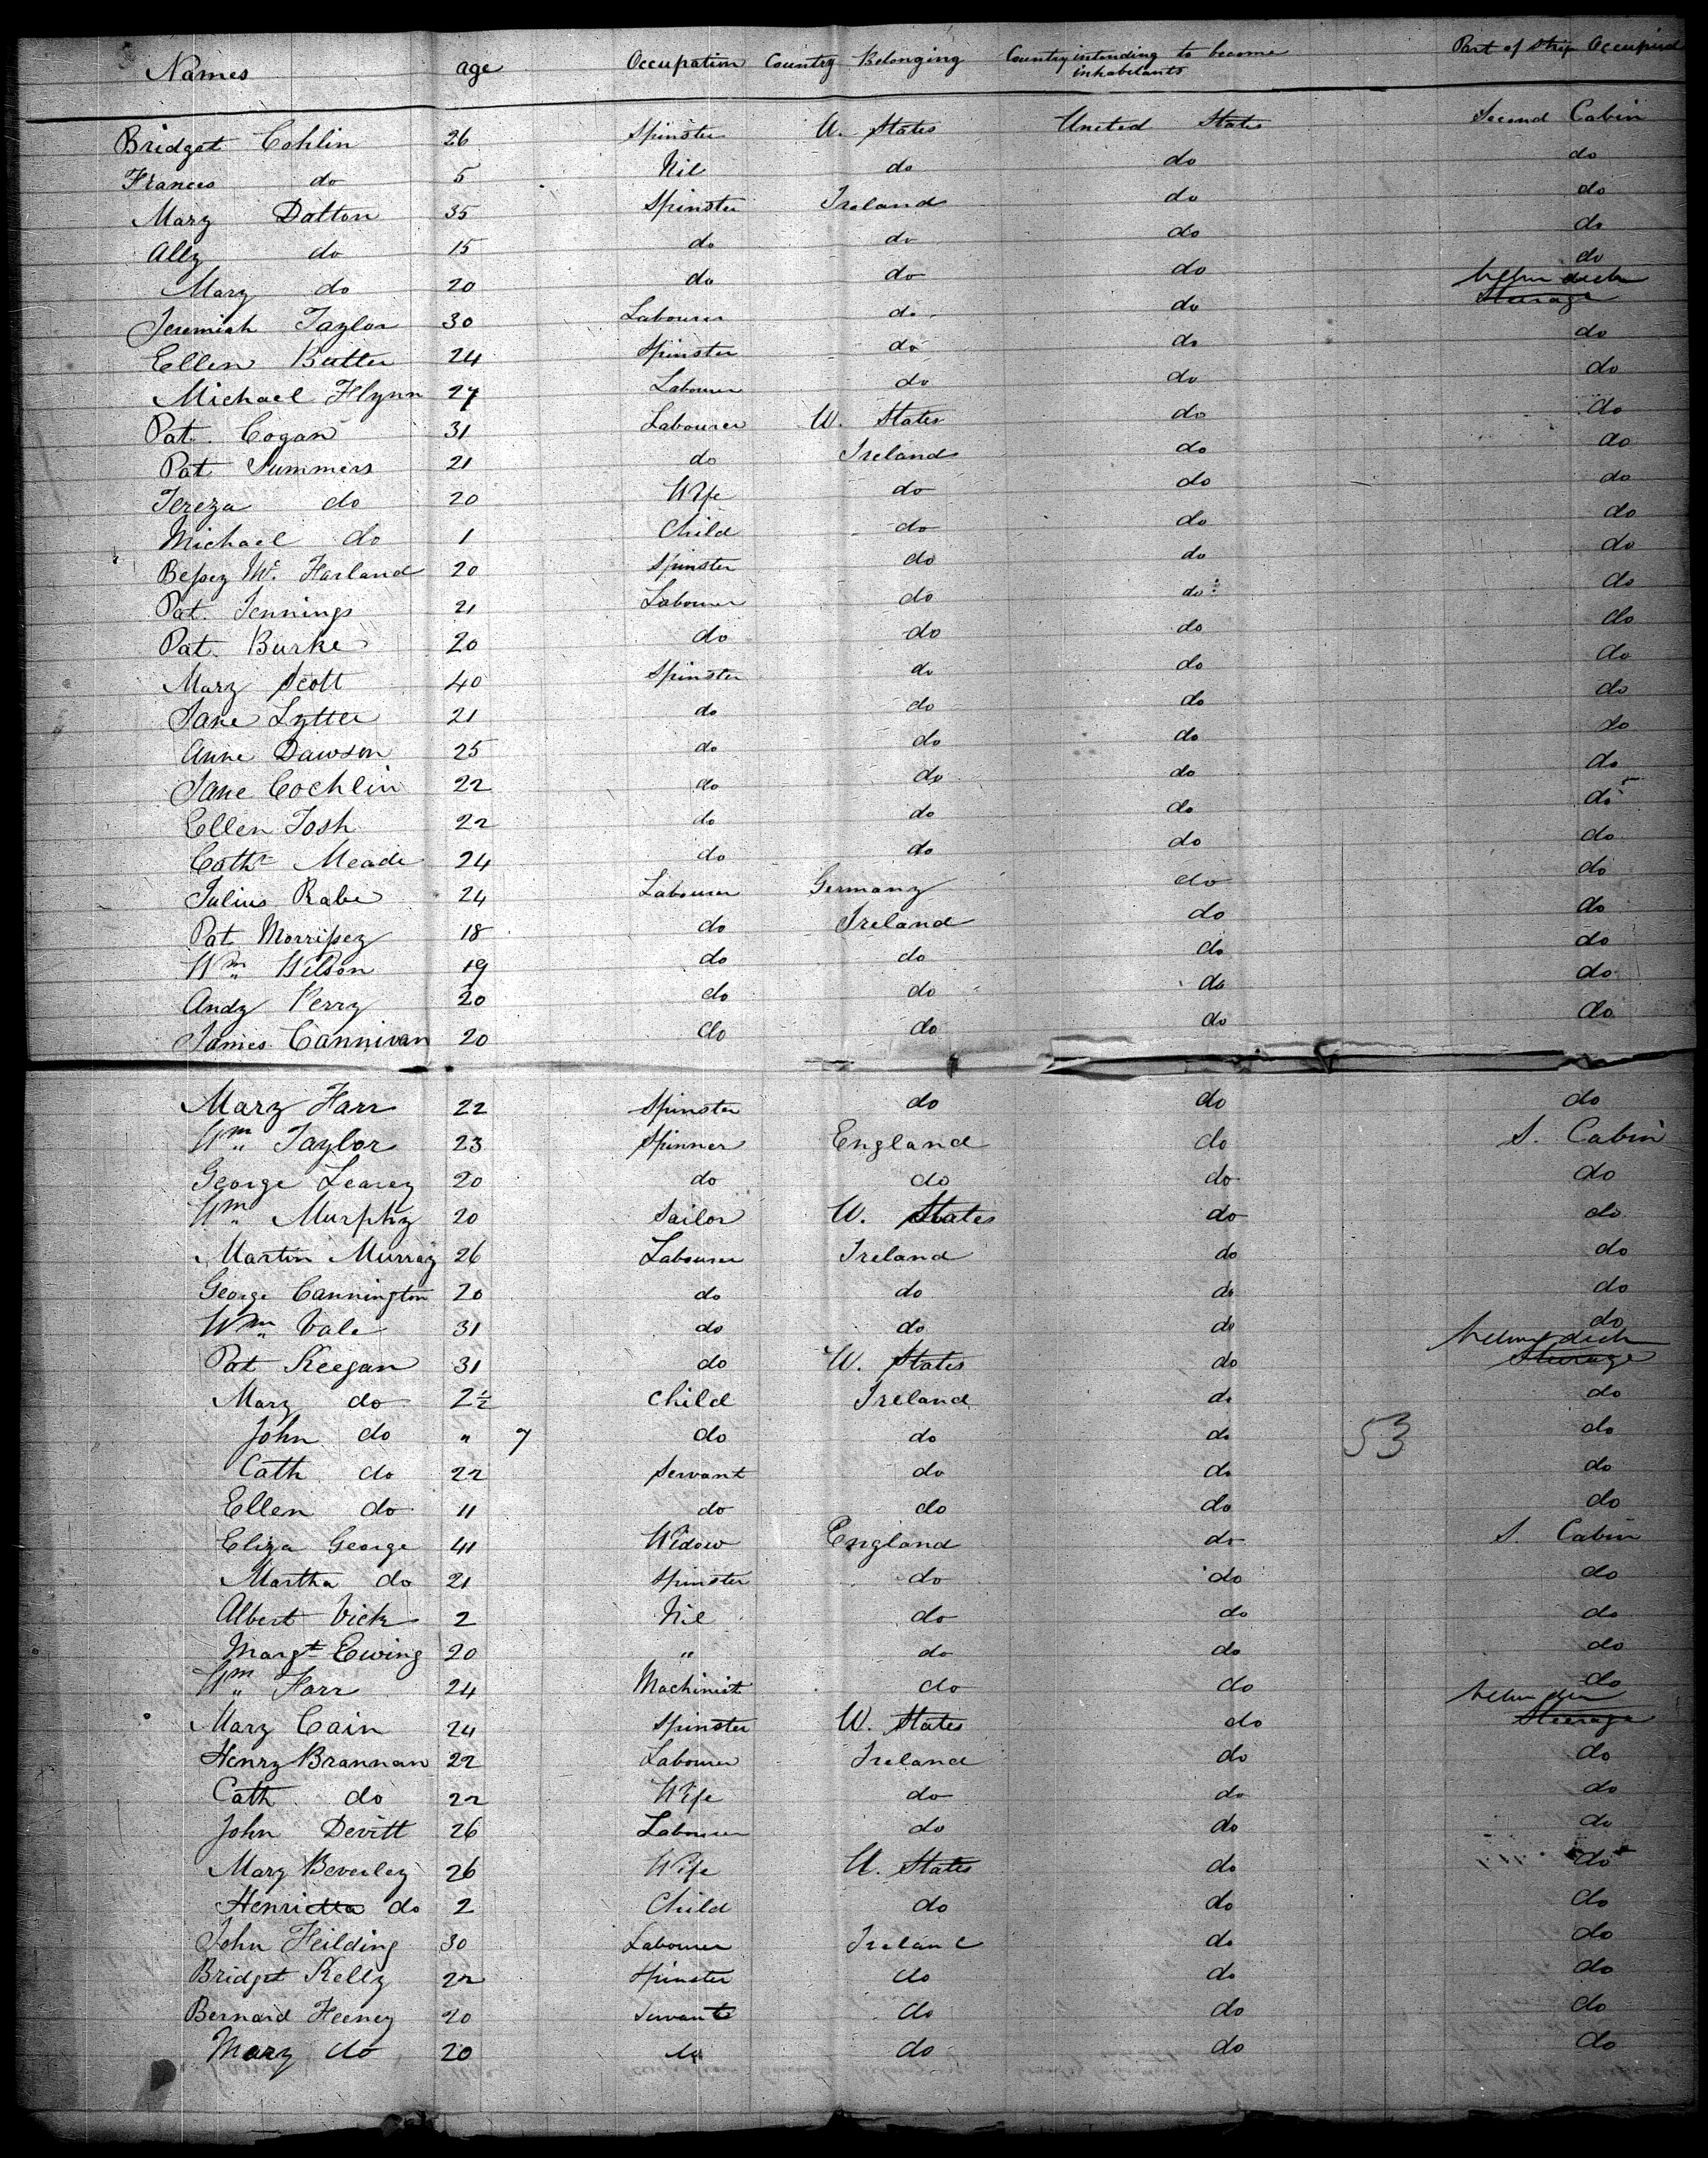 Names age Occupation Country Belonging Country intending to become inhabitants Part of Ship Occupied
Bridget Cohlin 26 Spinster U. States United States Second Cabin
Frances do 5 Nil do do do
Mary Dolton 35 Spinster Ireland do do
Ally do 15 do do do do
Mary do 20 do do do do
Jeremiah Taylor 30 Labourer do do Steerage
Ellen Butter 24 Spinster do do do
Michael Flynn 27 Labourer do do do
Pat. Cogan 31 Labourer U. States do do
Pat Summers 21 do Ireland do do
Tereza do 20 Wife do do do
Michael do 1 Child do do do
Bessey Mc. Farland 20 Spinster do do do
Pat. Jennings 21 Labourer do do do
Pat. Burke 20 do do do do
Mary Scott 40 Spinster do do do
Jane Lytter 21 do do do do
Anne Dawson 25 do do do do
Jane Cochlin 22 do do do do
Ellen Tosh 22 do do do do
Cathe Meade 24 do do do do
Julius Rabe 24 Labourer Germany do do
Pat Morrissey 18 do Ireland do do
Wm Wilson 19 do do do do
Andy Perry 20 do do do do
James Cannivan 20 do do do do
Mary Farr 22 Spinster do do do
Wm Taylor 23 Spinner England do S. Cabin
George Learey 20 do do do do
Wm Murphy 20 Sailor U. States do do
Martin Murray 26 Labourer Ireland do do
George Cannington 20 do do do do
Wm Vale 31 do do do do
Pat Keegan 31 do U. States do Steerage
Mary do 2½ Child Ireland do do
John do " 7 do do do 53 do
Cath do 22 Servant do do do
Ellen do 11 do do do do
Eliza George 41 Widow England do S. Cabin
Martha do 21 Spinster do do do
Albert Vick 2 Nil do do do
Margt Ewing 20 " do do do
Wm Farr 24 Machinist do do do
Mary Cain 24 Spinster U. States do Steerage
Henry Brannan 22 Labourer Ireland do do
Cath do 22 Wife do do do
John Devitt 26 Labourer do do do
Mary Beverley 26 Wife U. States do do
Henrietta do 2 Child do do do
John Feilding 30 Labourer Ireland do do
Bridget Kelly 22 Spinster do do do
Bernard Feeney 20 Servant do do do
Mary do 20 do do do